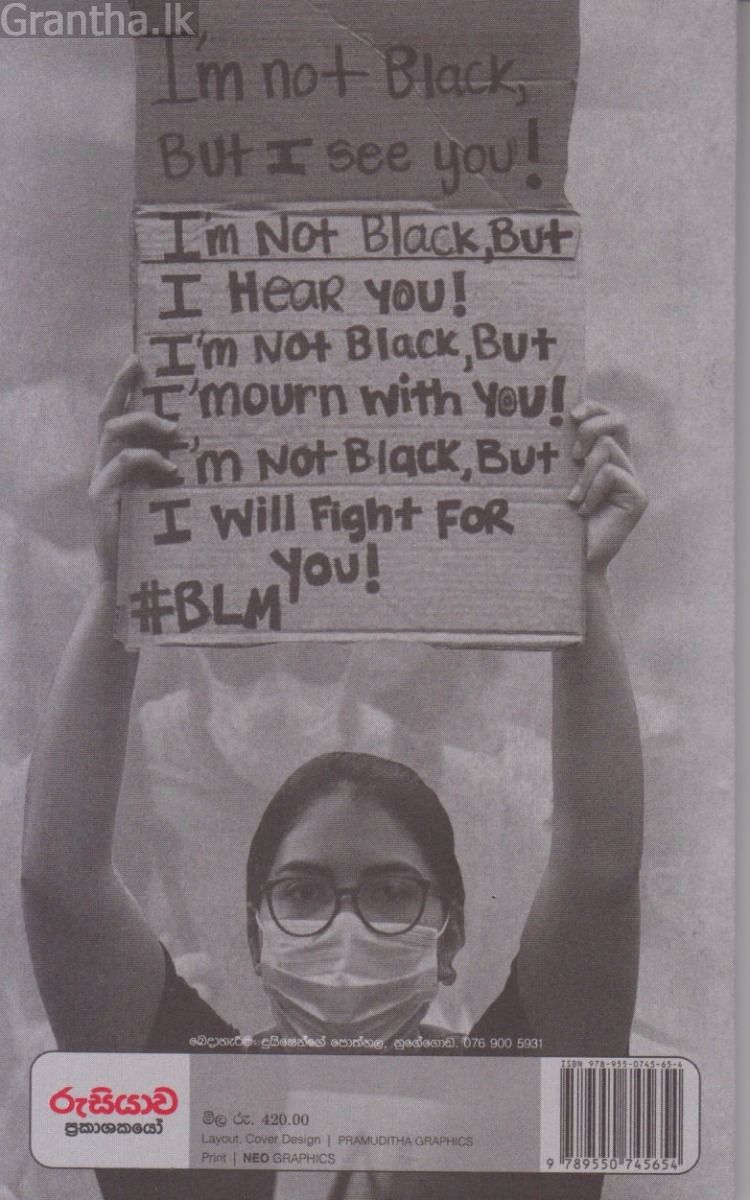 Grantha.lk
I'm not Black,
But I see you!
I'm Not Black, But
I Hear you!
I'm Not Black, But
I'mourn with you!
I'm Not Black, But
I will Fight For
you!
#BLM
බෙදාහැරීම: දුයිෂෙන්ගේ පොත්හල, නුගේගොඩ. 076 900 5931
රුසියාව
ප්‍රකාශකයෝ
මිල රු. 420.00
Layout, Cover Design | PRAMUDITHA GRAPHICS
Print | NEO GRAPHICS
ISBN 978-955-0745-65-4
9 789550 745654